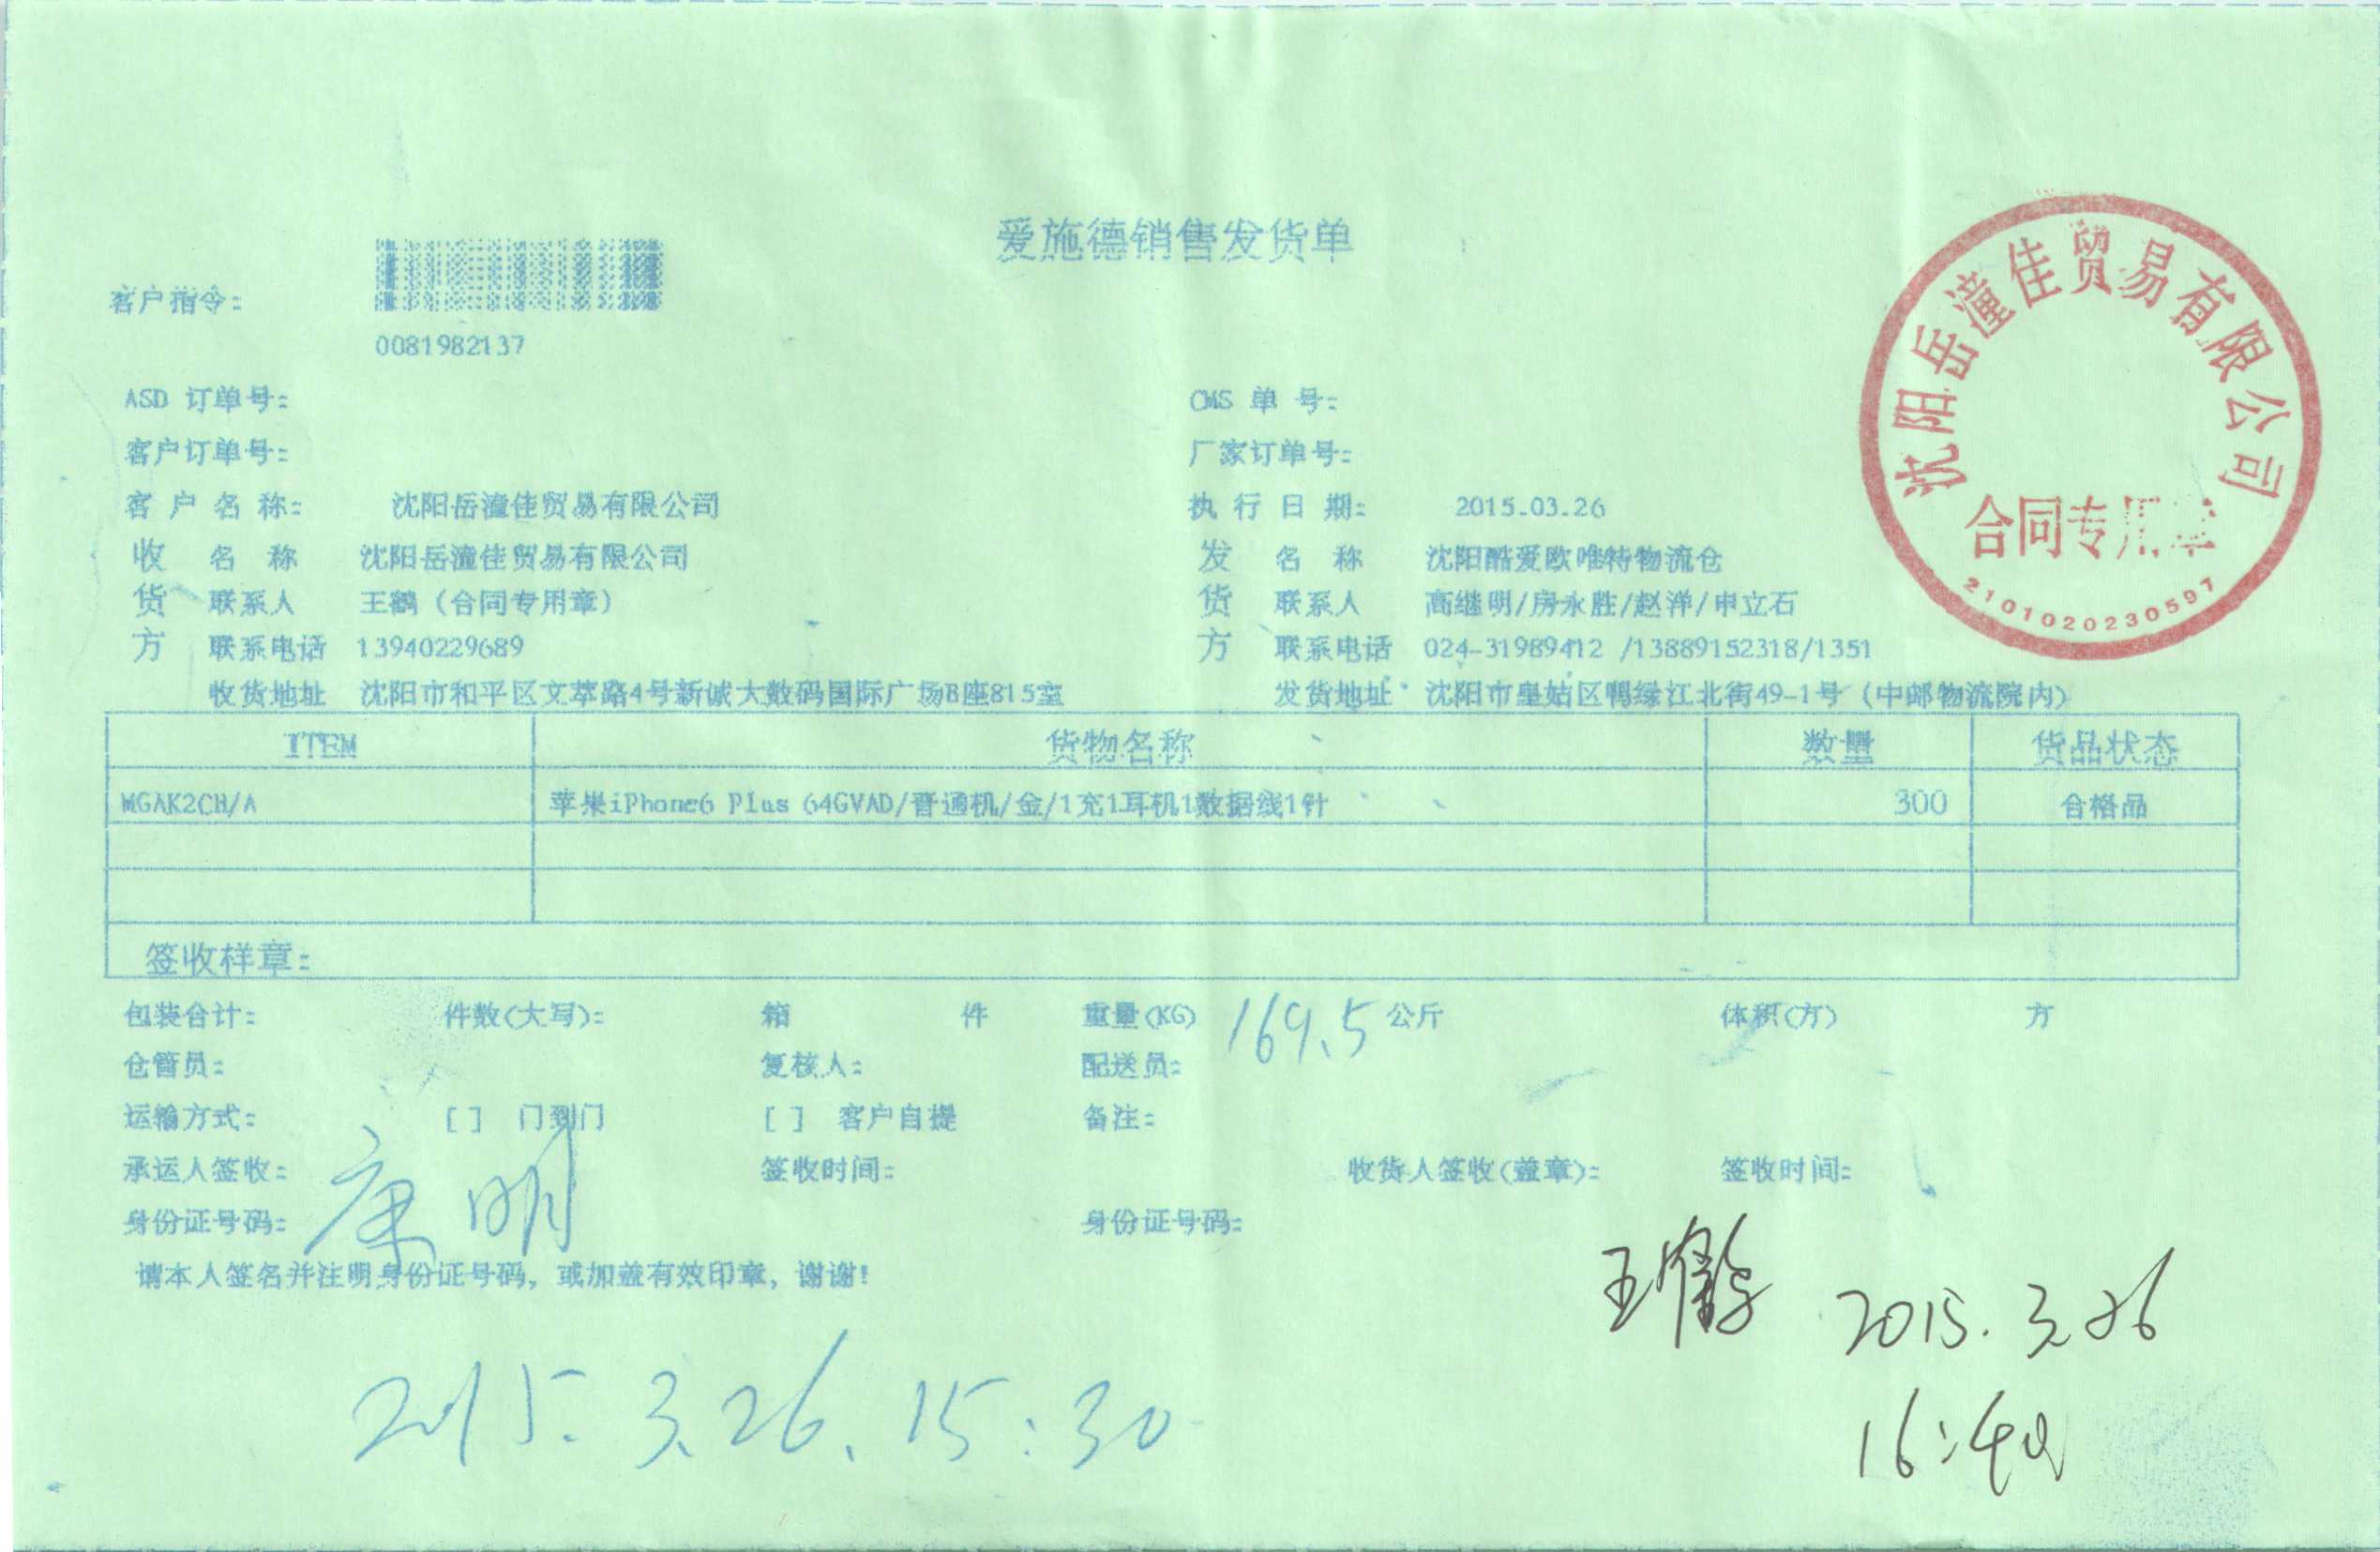 爱施德销售发货单
客户指令:
0081982137
ASD 订单号: CMS 单 号:
客户订单号: 厂家订单号:
客 户 名 称: 沈阳岳潼佳贸易有限公司 执 行 日 期: 2015.03.26
收 名 称 沈阳岳潼佳贸易有限公司 发 名 称 沈阳酷爱欧唯特物流仓
货 联系人 王鹤(合同专用章) 货 联系人 高继明/房永胜/赵洋/申立石
方 联系电话 13940229689 方 联系电话 024-31989412 /13889152318/1351
收货地址 沈阳市和平区文萃路4号新诚大数码国际广场B座815室 发货地址 沈阳市皇姑区鸭绿江北街49-1号(中邮物流院内)
ITEM 货物名称 数量 货品状态
MGAK2CH/A 苹果iPhone6 Plus 64GVAD/普通机/金/1充1耳机1数据线1针 300 合格品
签收样章:
包装合计: 件数(大写): 箱 件 重量(KG) 169.5 公斤 体积(方) 方
仓管员: 复核人: 配送员:
运输方式: [ ] 门到门 [ ] 客户自提 备注:
承运人签收: 康明 签收时间: 收货人签收(盖章): 签收时间:
身份证号码: 身份证号码:
请本人签名并注明身份证号码, 或加盖有效印章, 谢谢!
王鹤 2015.3.26
2015.3.26.15:30
沈阳岳潼佳贸易有限公司
合同专用章
2101020230597